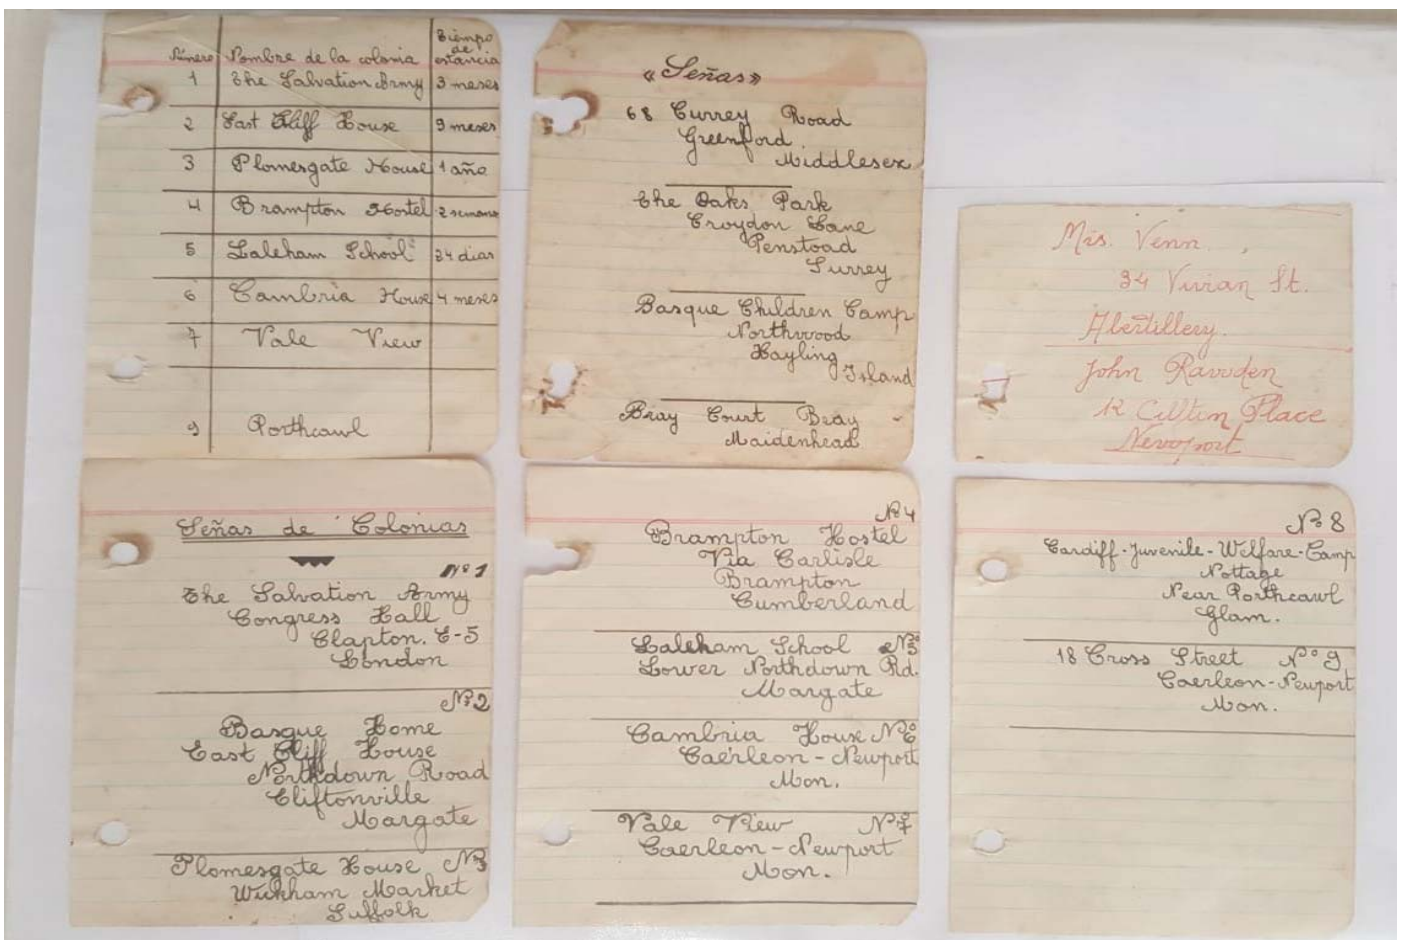 Número Nombre de la colonia Tiempo de estancia
1 The Salvation Army 3 meses
2 East Cliff House 9 meses
3 Plomesgate House 1 año
4 Brampton Hostel 2 semanas
5 Laleham School 24 dias
6 Cambria House 4 meses
7 Vale View
9 Porthcawl
«Señas»
68 Currey Road
Greenford
Middlesex
The Oaks Park
Croydon Lane
Penstoad
Surrey
Basque Children Camp
Northwood
Hayling
Island
Bray Court Bray -
Maidenhead
Mis. Venn.,
34 Vivian St.
Abertillery.
John Ravden
12 Place
Newport
Señas de Colonias
Nº 1
The Salvation Army
Congress Hall
Clapton. E-5
London
Nº 2
Basque Home
East Cliff House
Northdown Road
Cliftonville
Margate
Plomesgate House Nº3
Wickham Market
Suffolk
Nº 4
Brampton Hostel
Via Carlisle
Brampton
Cumberland
Laleham School Nº5
Lower Northdown Rd.
Margate
Cambria House Nº6
Caerleon-Newport
Mon.
Vale View Nº7
Caerleon-Newport
Mon.
Nº 8
Cardiff-Juvenile-Welfare-Camp
Nottage
Near Porthcawl
Glam.
18 Cross Street Nº 9
Caerleon-Newport
Mon.